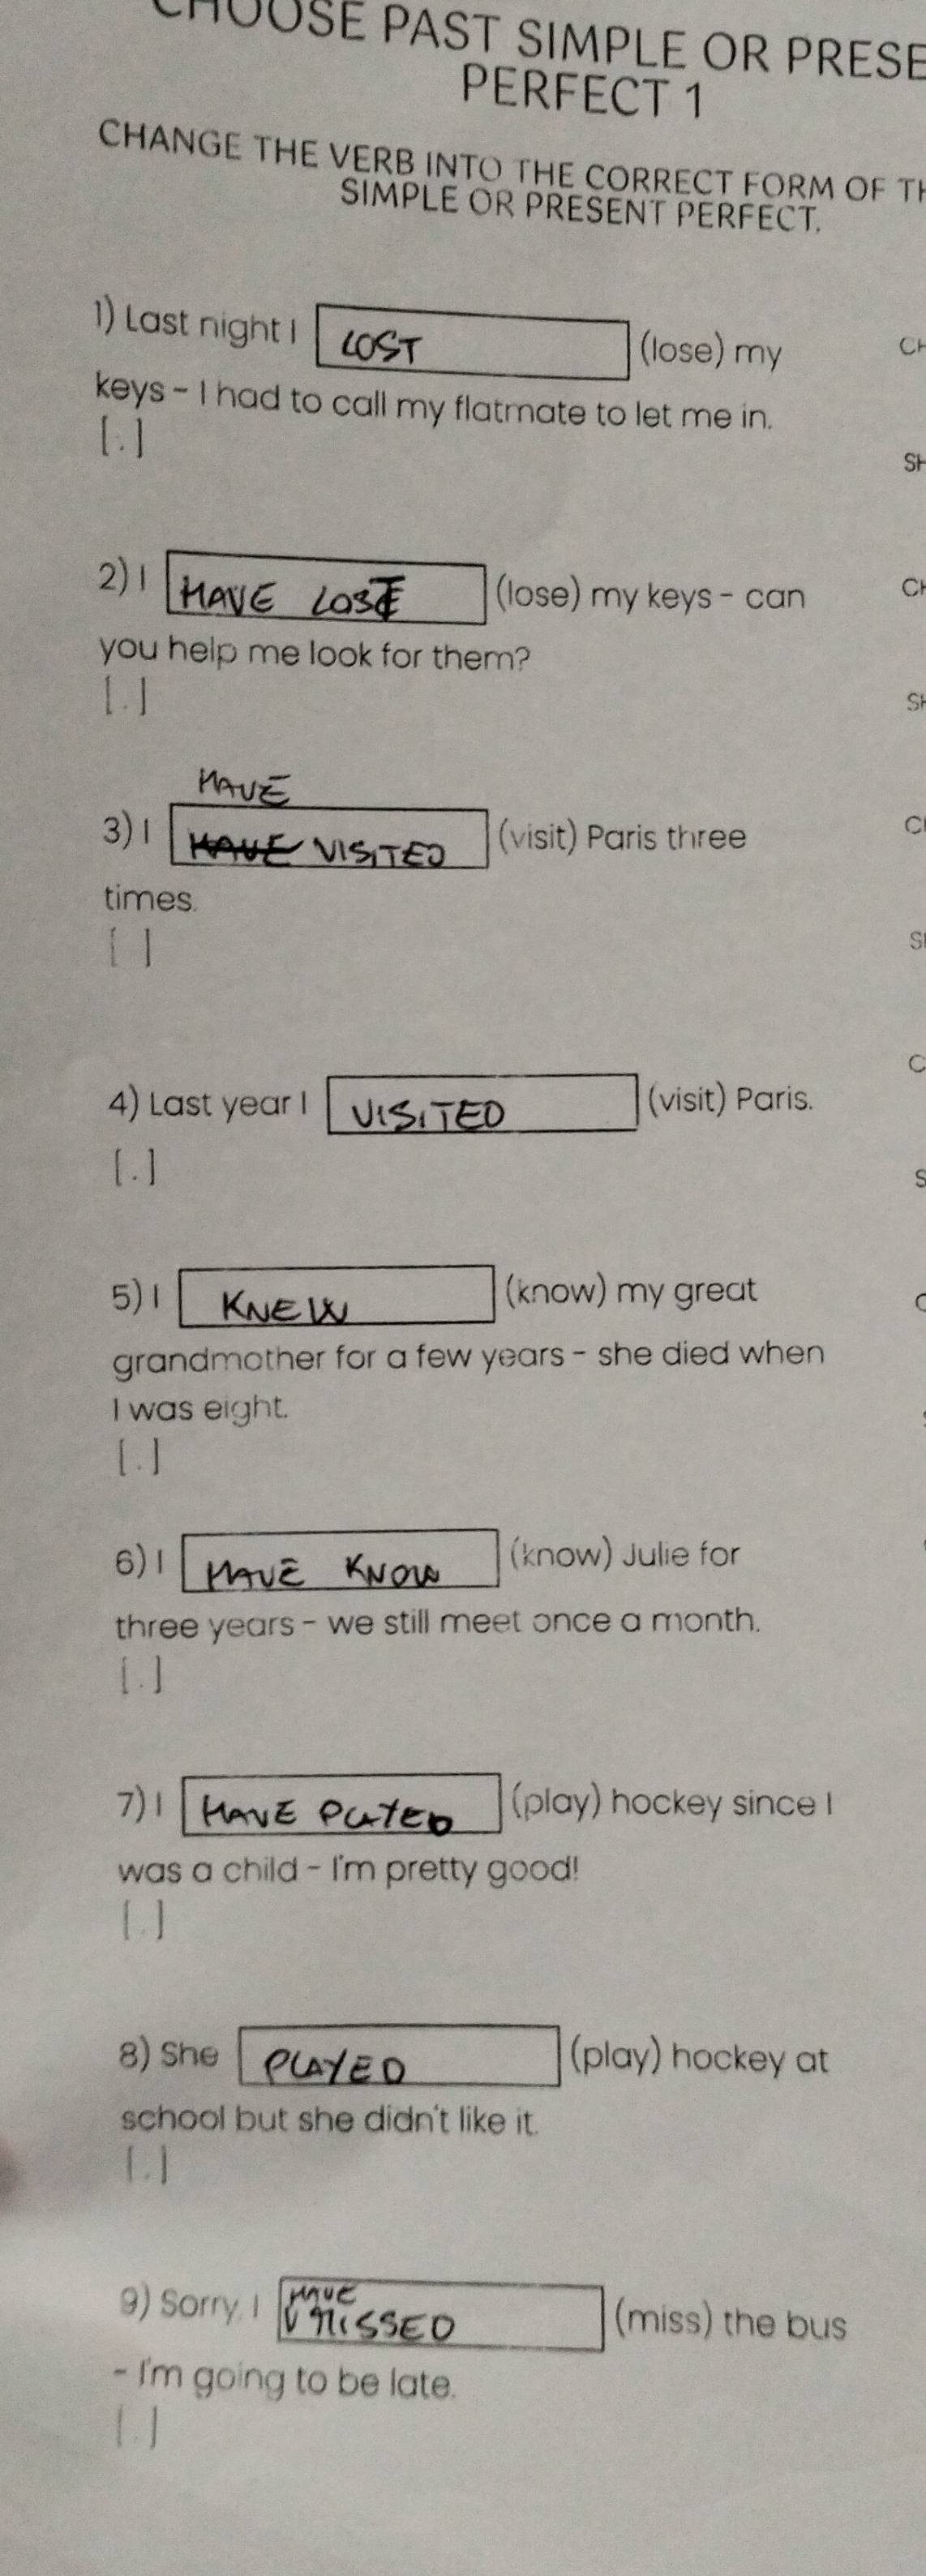 CHOOSE PAST SIMPLE OR PRESE
PERFECT 1
CHANGE THE VERB INTO THE CORRECT FORM OF TH
SIMPLE OR PRESENT PERFECT.
1) Last night I LOST (lose) my
keys - I had to call my flatmate to let me in.
[.]
2) I HAVE LOST (lose) my keys - can
you help me look for them?
[.]
HAVE
3) I HAVE VISITED (visit) Paris three
times.
[ ]
4) Last year I VISITED (visit) Paris.
[.]
5) I KNEW (know) my great
grandmother for a few years - she died when
I was eight.
[.]
6) I HAVE KNOW (know) Julie for
three years - we still meet once a month.
[.]
7) I HAVE PLAYED (play) hockey since I
was a child - I'm pretty good!
[.]
8) She PLAYED (play) hockey at
school but she didn't like it.
[.]
HAVE
9) Sorry, I MISSED (miss) the bus
- I'm going to be late.
[.]